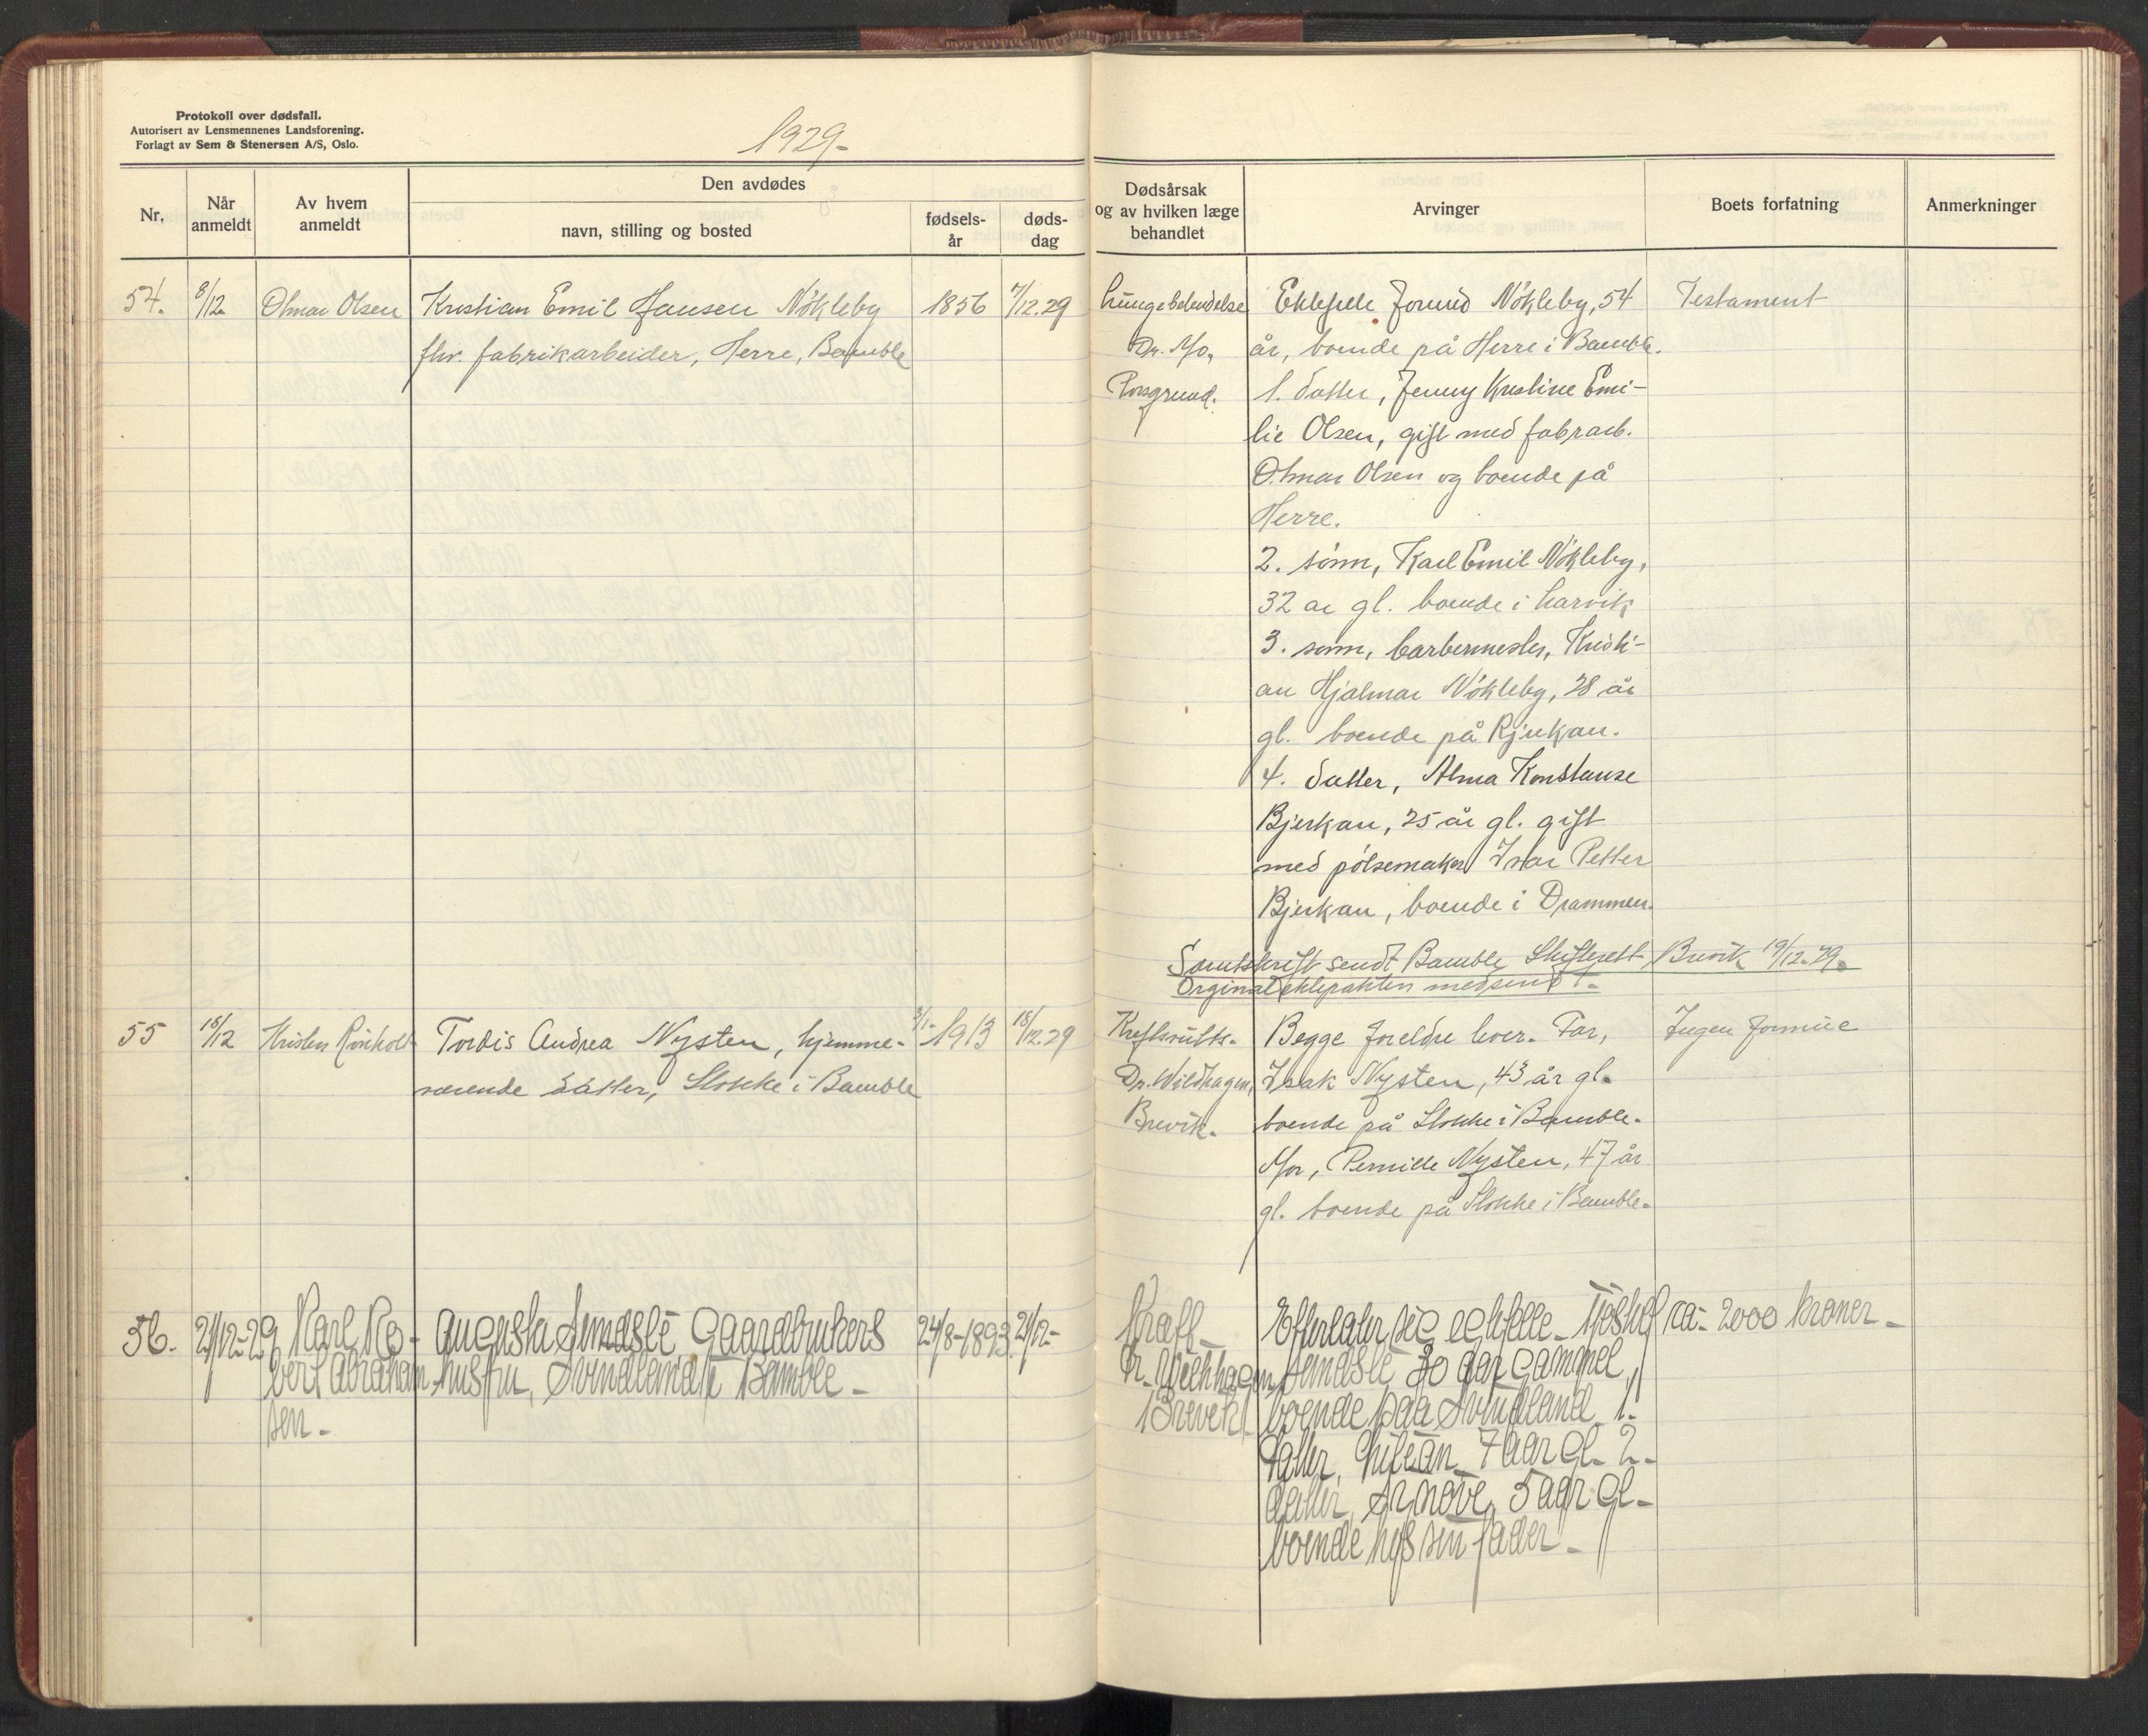 Protokoll over dødsfall.
Autorisert av Lensmennenes Landsforening.
Forlagt av Sem & Stenersen A/S, Oslo.
1929-
Nr.
Når anmeldt
Av hvem anmeldt
Den avdødes
navn, stilling og bosted
fødsels-år
døds-dag
Dødsårsak
og av hvilken læge
behandlet
Arvinger
Boets forfatning
Anmerkninger
54. 8/12 Otmar Olsen Kristian Emil Hansen Nökleby 1856 7/12.29
fhv. fabrikarbeider, Herre, Bamble
Lungebetendelse
Dr. Mo,
Porsgrund.
Ektefelle Nökleby, 54
år, boende på Herre i Bamble.
1. datter, Jenny Kristine Emi-
lie Olsen, gift med fabrarb.
Otmar Olsen og boende på
Herre.
2. sönn, Karl Emil Nökleby,
32 år gl. boende i Larvik
3. sönn, barbermester, Kristi-
an Hjalmar Nökleby, 28 år
gl. boende på Rjukan.
4. datter, Alma Konstanse
Bjerkan, 25 år gl. gift
med pölsemaker Ivar Petter
Bjerkan, boende i Drammen.
Testament
sendt Bamble Skifterett Brevik 19/12-29.
Orginal ektepakten medsendt.-
55 18/12 Kristen Rönholt Tordis Andrea Nysten, hjemme- 3/1- 1913 18/12.29
værende datter, Stokke i Bamble
Dr. Wildhagen,
Brevik.
Begge foreldre lever. Far,
Isak Nysten, 43 år gl.
boende på Stokke i Bamble.
Mor, Pernille Nysten, 47 år
gl. boende på Stokke i Bamble.
Ingen formue
56. 21/12-29 Karl Ro- Augusta Gaardbrukers 24/8-1893. 21/12-
bert Abraham- hustru, Svindland i Bamble-
sen-
Kræft-
Dr. Wilhhagen
Brevik
Efterlater sig egtefelle-
30 aar gammel,
boende paa Svindland 1-
datter, 7 aar gl- 2-
datter, 5 aar gl-
boende hos sin fader-
ca- 2000 kroner-